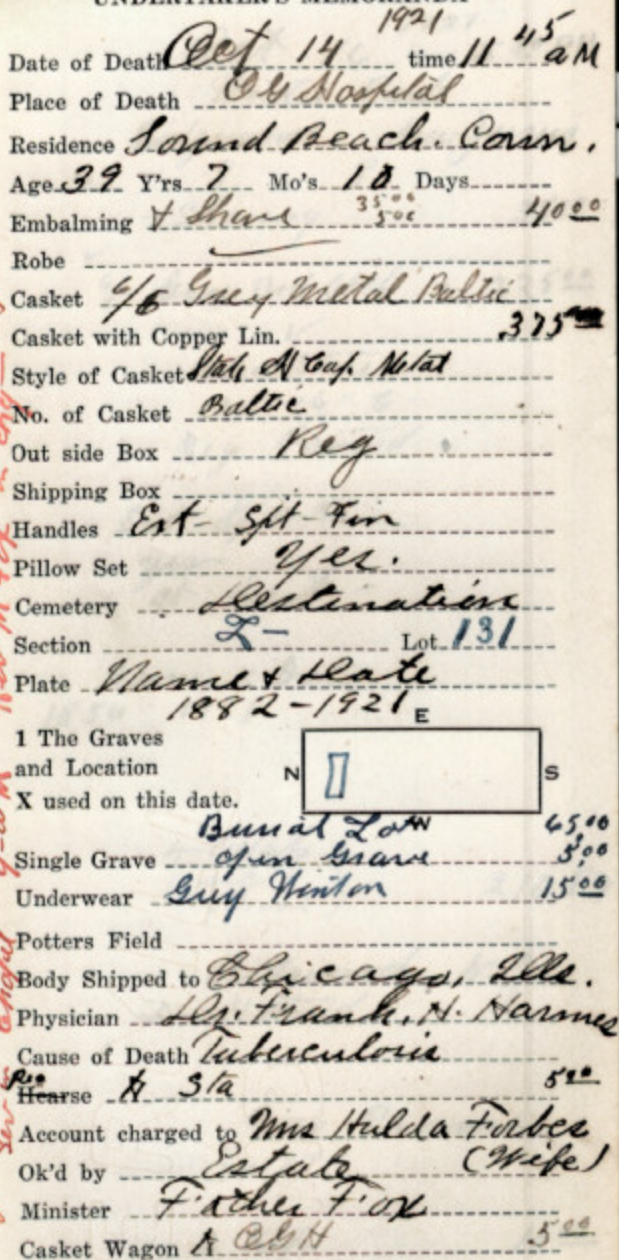 UNDERTAKER'S MEMORANDA
1921
Date of Death Oct 14 time 11 45 a M
Place of Death OG Hospital
Residence Sound Beach. Conn.
Age 39 Y'rs 7 Mo's 10 Days
Embalming & Shave 35 00 5 00 40 00
Robe
Casket 6/6 Grey Metal Baltic
Casket with Copper Lin. 375
Style of Casket State Metal
No. of Casket Baltic
Out side Box Reg
Shipping Box
Handles Ext - Fin
Pillow Set Yes.
Cemetery Destination
Section Lot 131
Plate Name & Date
1882-1921
E
1 The Graves
and Location N S
X used on this date.
W
Burial Lot 65.00
Single Grave open Grave 5.00
Underwear 15 00
Potters Field
Body Shipped to Chicago, Ills.
Physician Dr. Frank. H. Harmes
Cause of Death Tuberculosis
Hearse Sta 5 00
Account charged to Mrs Hulda Forbes
Ok'd by Estate (Wife)
Minister Father Fox
Casket Wagon OGH 5 00